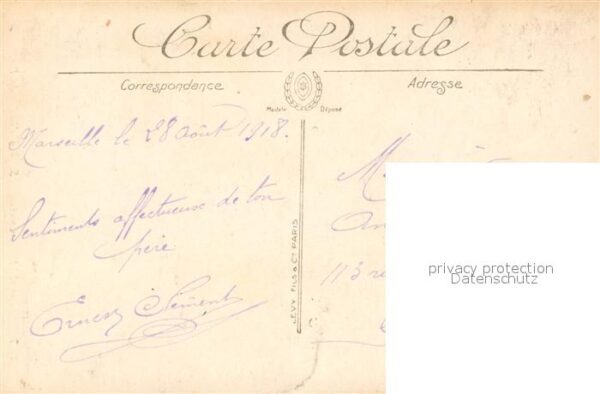 Carte Postale
Correspondance
Adresse
Modèle Déposé
Marseille le 28 Août 1918.
Sentiments affectueux de ton
père
Ernest
LEVY FILS & Cie PARIS
M.
An
113 r
privacy protection
Datenschutz